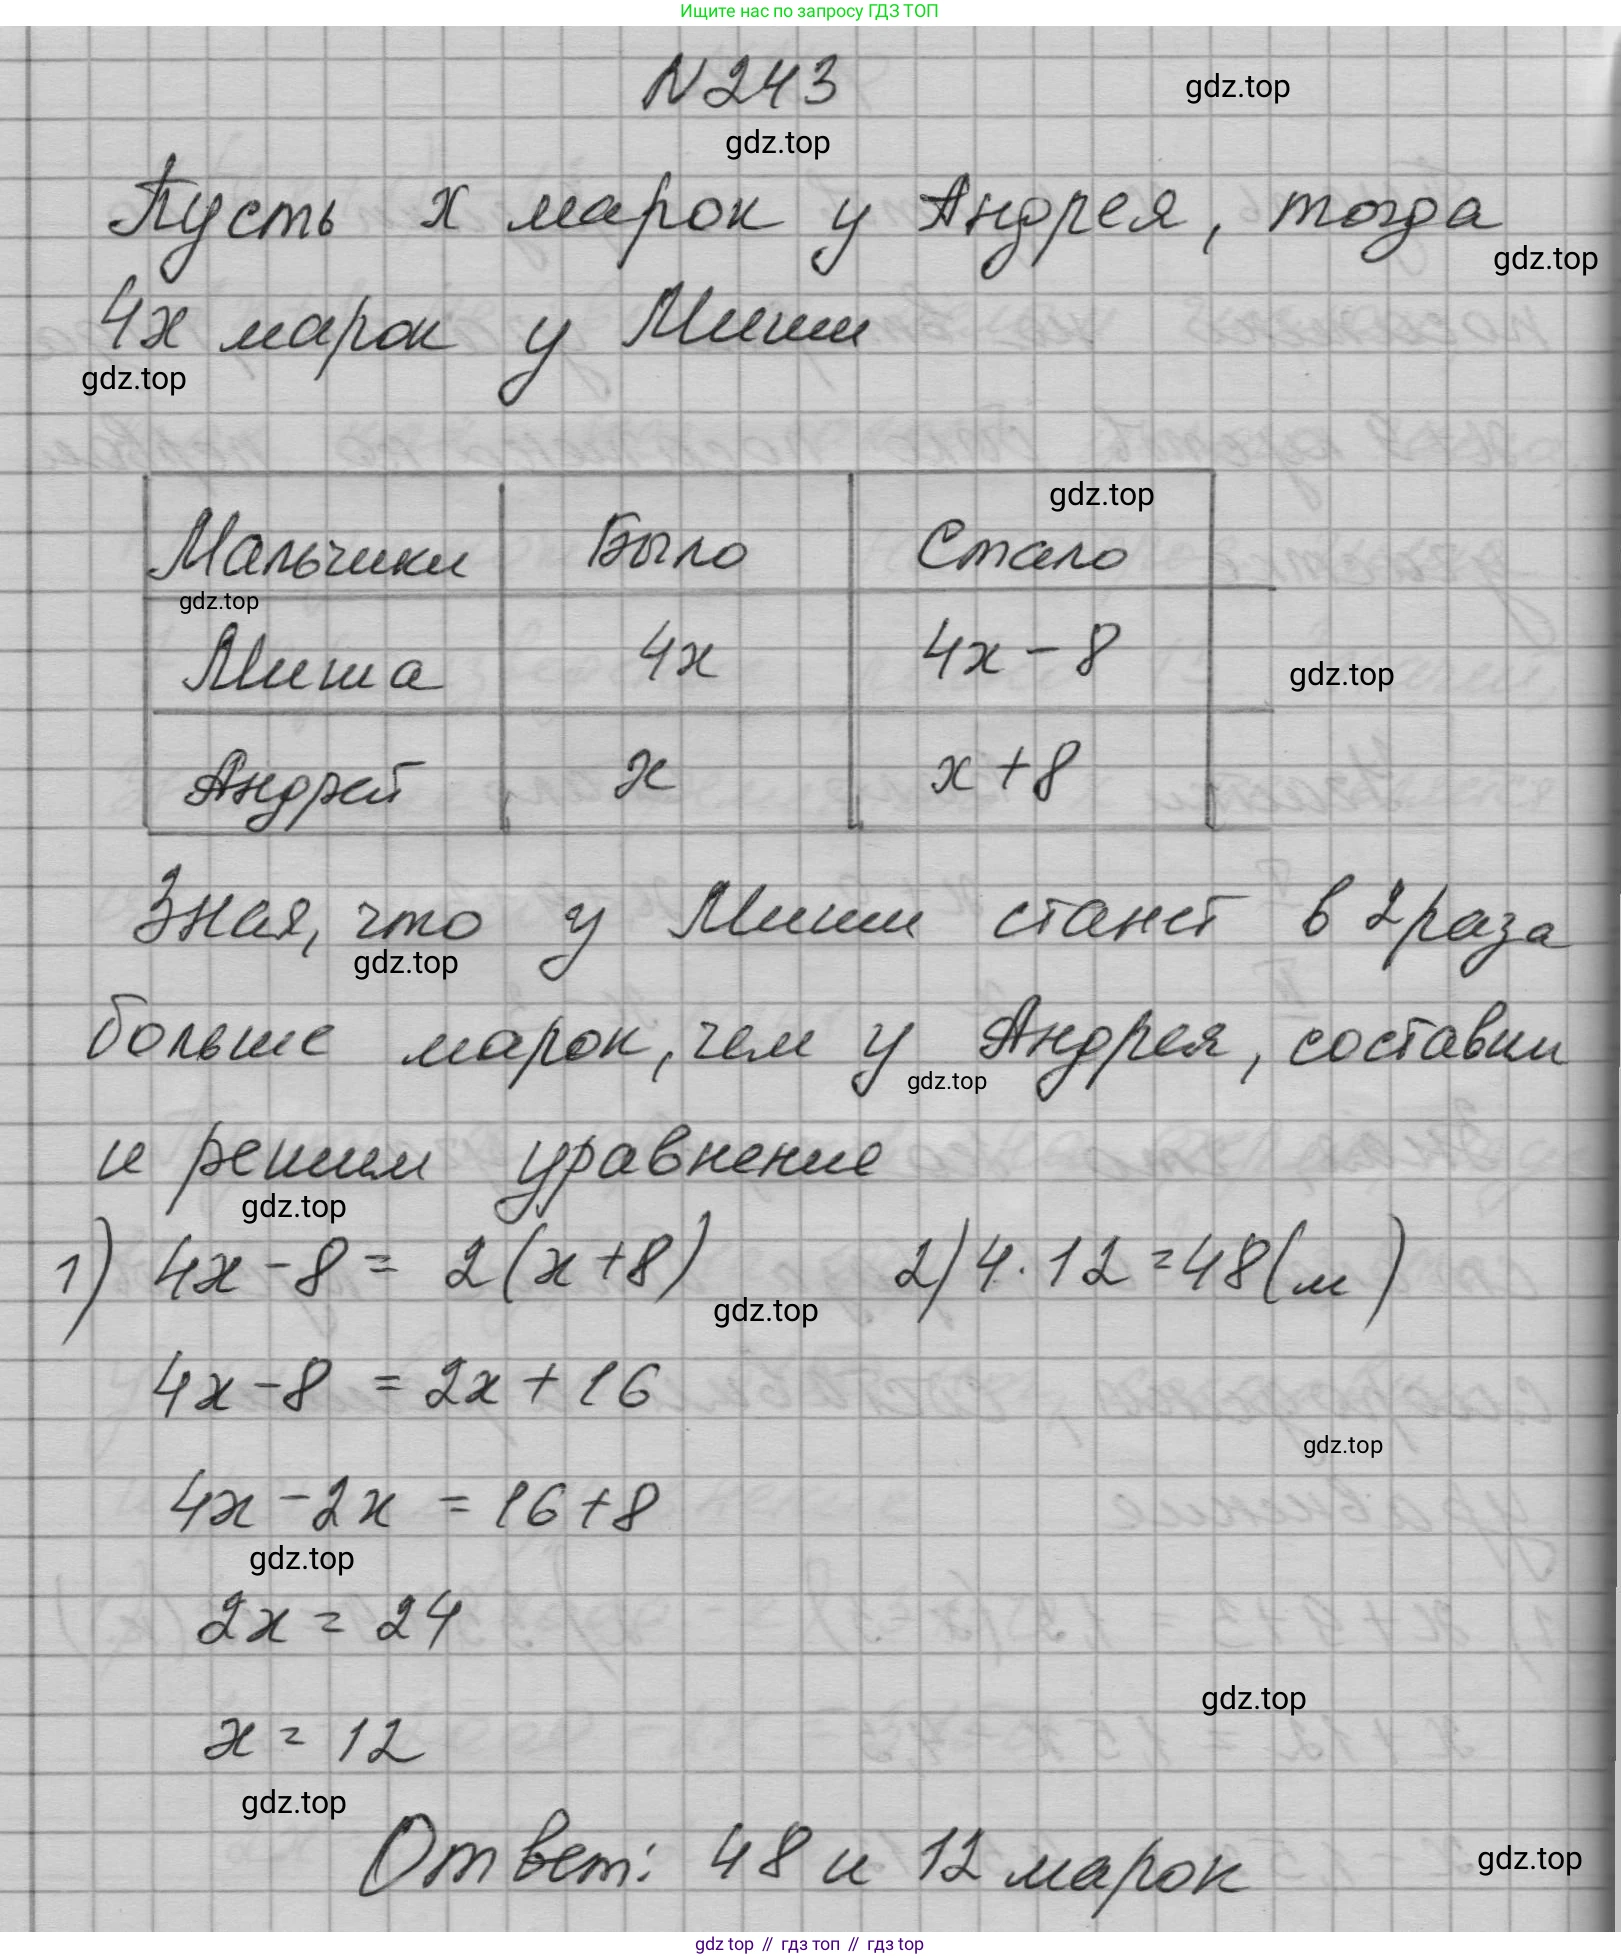 Ищите нас по запросу ГДЗ ТОП
N 243
gdz.top
gdz.top
Пусть x марок у Андрея, тогда
gdz.top
4x марок у Миши
gdz.top
gdz.top
Мальчики Было Стало
gdz.top
Миша 4x 4x - 8
gdz.top
Андрей x x + 8
Зная, что у Миши станет в 2 раза
gdz.top
больше марок, чем у Андрея, составим
gdz.top
и решим уравнение
gdz.top
1) 4x - 8 = 2(x + 8) 2) 4 · 12 = 48 (м)
gdz.top
4x - 8 = 2x + 16
gdz.top
4x - 2x = 16 + 8
gdz.top
2x = 24
gdz.top
x = 12
gdz.top
Ответ: 48 и 12 марок
gdz.top
gdz top // гдз топ // гдз top